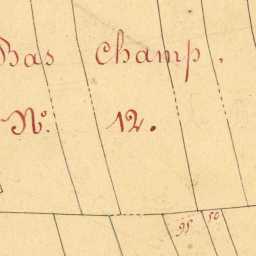 Bas champ.
N.º 12.
95 50